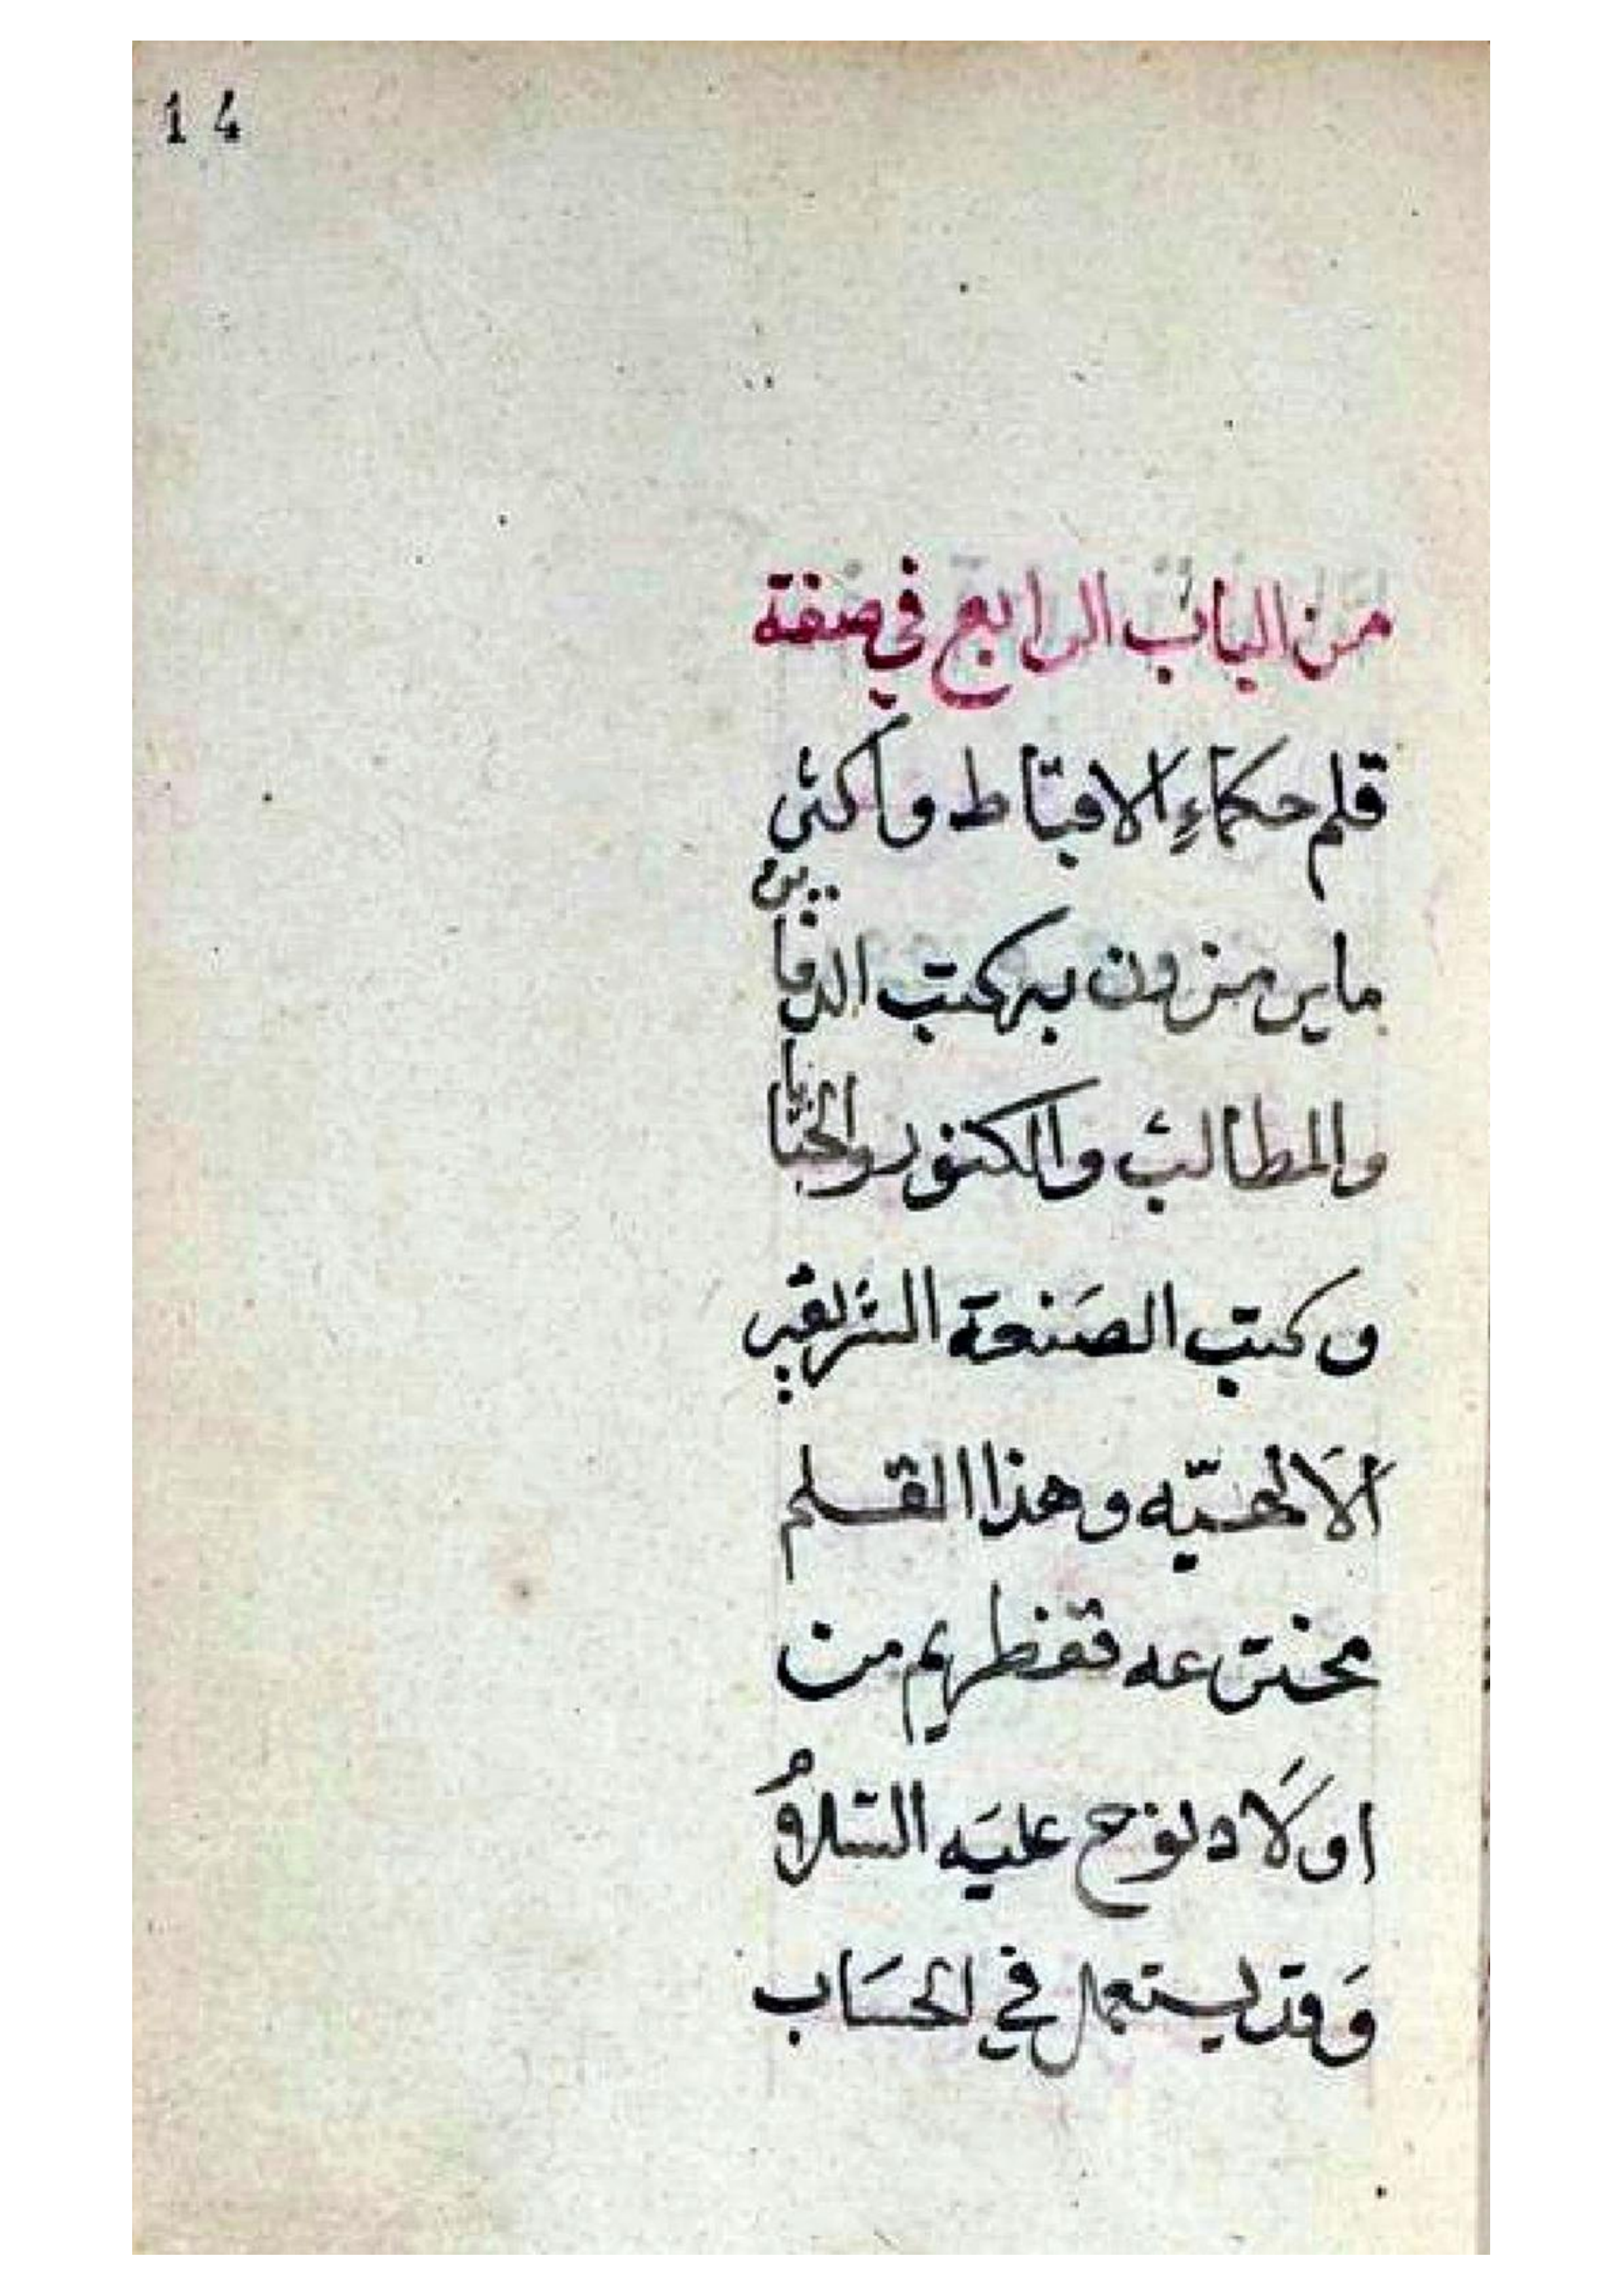 14
من الباب الرابع في صفة
قلم حكماءِ الاقباط واكثر
ما يرمزون به كتب الدفاين
والمطالب والكنوز والخبايا
وكتب الصَنعة الشريفه
الَالهيّه وهذا القلم
مخترعه قفطريم من
اولَاد نوح عليَه السلامُ
وَقد يستعمل في الحسَاب